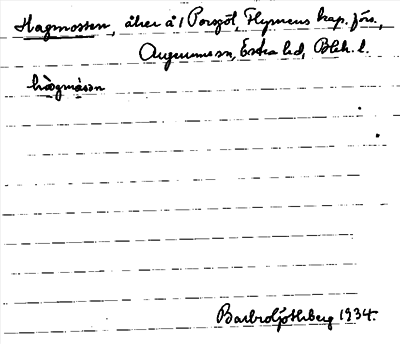 Hagmossen, åker å 1 Porsgöl, Flymens kap. förs.,
Augerums sn, Östra hd, Blek. l.
hàgmássn
Barbro Ljothberg 1934.